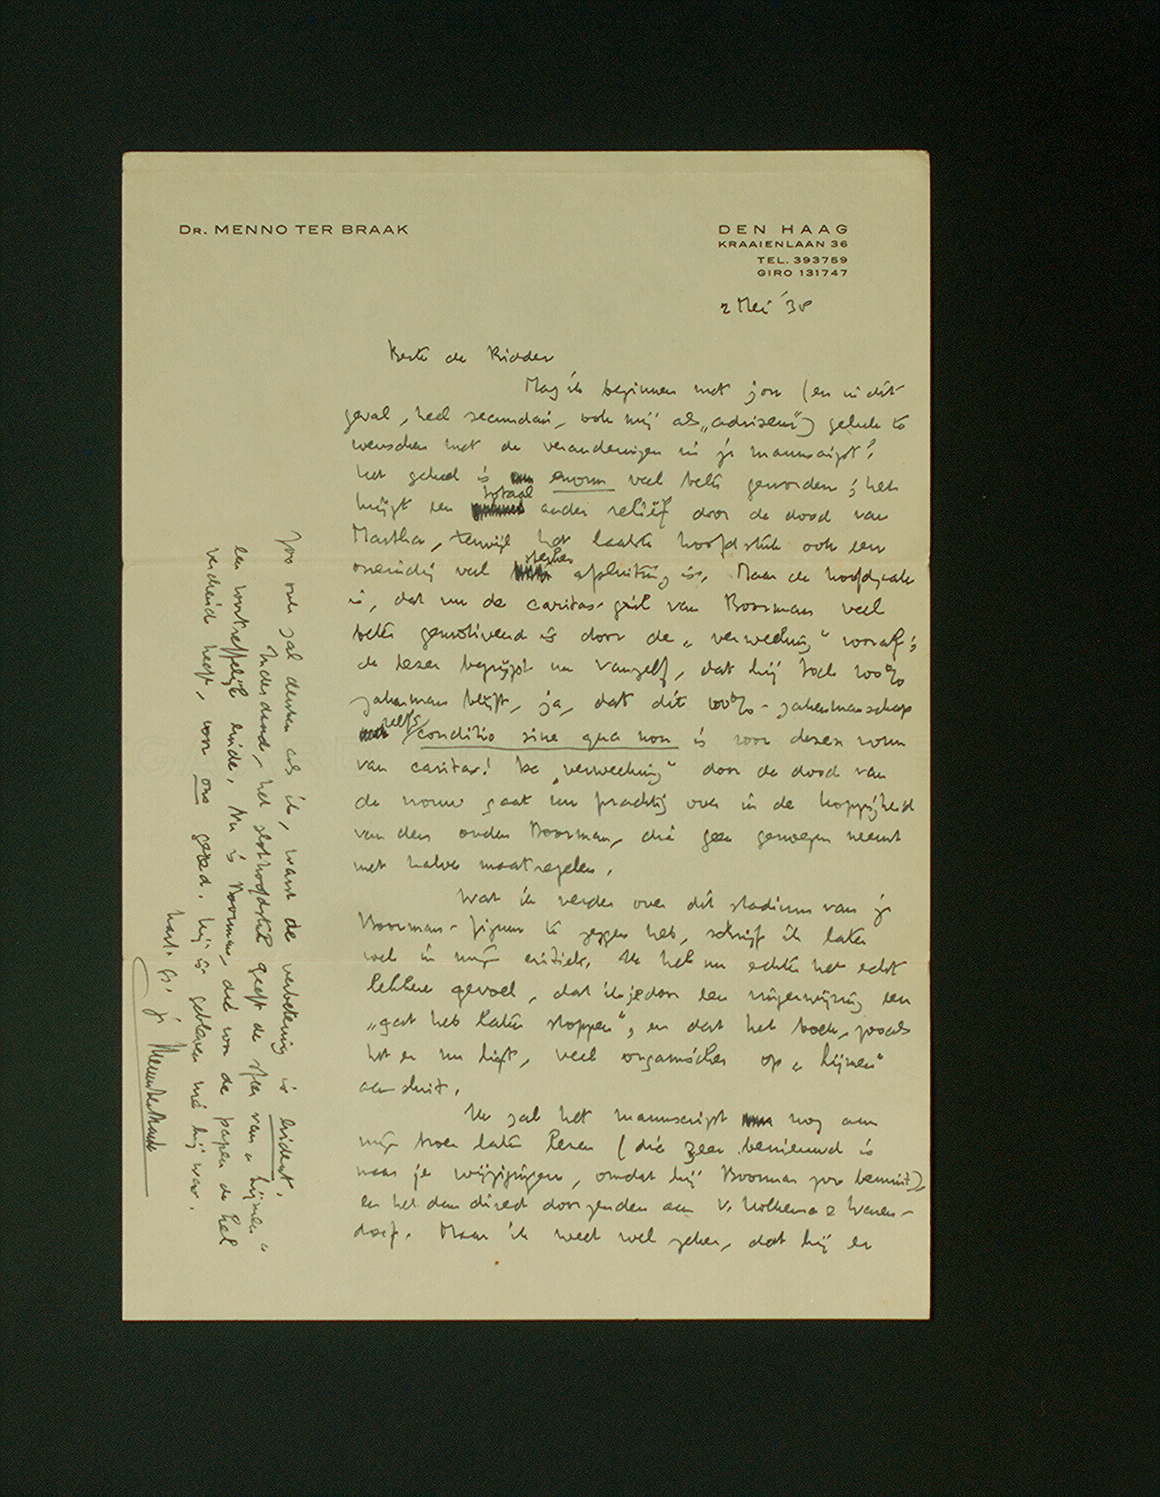 DR. MENNO TER BRAAK
DEN HAAG
KRAAIENLAAN 36
TEL. 393759
GIRO 131747
2 Mei '38
Beste de Ridder
Mag ik beginnen met jou (en in dit
geval, heel secundair, ook mij als „adviseur") geluk te
wenschen met de veranderingen in je manuscript?
Het geheel is enorm veel beter geworden; het
krijgt een totaal ander reliëf door de dood van
Martha, terwijl het laatste hoofdstuk ook een
oneindig veel sterker afsluiting is. Maar de hoofdzaak
is, dat nu de caritas-gril van Boorman veel
beter gemotiveerd is door de „verweeking" vooraf;
de lezer begrijpt nu vanzelf, dat hij toch 100%
zakenman blijft, ja, dat dit 100%-zakenmanschap
zelfs conditio sine qua non is voor dezen vorm
van caritas! De „verweeking" door de dood van
de vrouw gaat nu prachtig over in de koppigheid
van den ouden Boorman, die geen genoegen neemt
met halve maatregelen.
Wat ik verder over dit stadium van je
Boorman-figuur te zeggen heb, schrijf ik later
wel in mijn critiek. Ik heb nu echter het echt
lekkere gevoel, dat ik je door een vingerwijzing een
„gat heb laten stoppen", en dat het boek, zooals
het er nu ligt, veel organischer op „Lijmen"
aansluit.
Ik zal het manuscript nog aan
mijn broer laten lezen (die zeer benieuwd is
naar je wijzigingen, omdat hij Boorman zoo bemint),
en het dan direct doorzenden aan v. Holkema & Waren-
dorf. Maar ik weet wel zeker, dat hij er
zoo over zal denken als ik, want de verbetering is evident.
Inderdaad, het slothoofdstuk geeft de sfeer van „Lijmen"
een voortreffelijk einde. Nu is Boorman, die voor de papen de hel
verdiend heeft, voor ons gered. Hij is gebleven wie hij was.
hart. gr. je Menno ter Braak